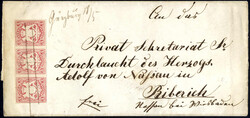 An das
Privat Sekretariat Sr
Durchlaucht des Herzogs
Adolf von Nassau in
Biberich
frei
Nassau bei Wiesbaden